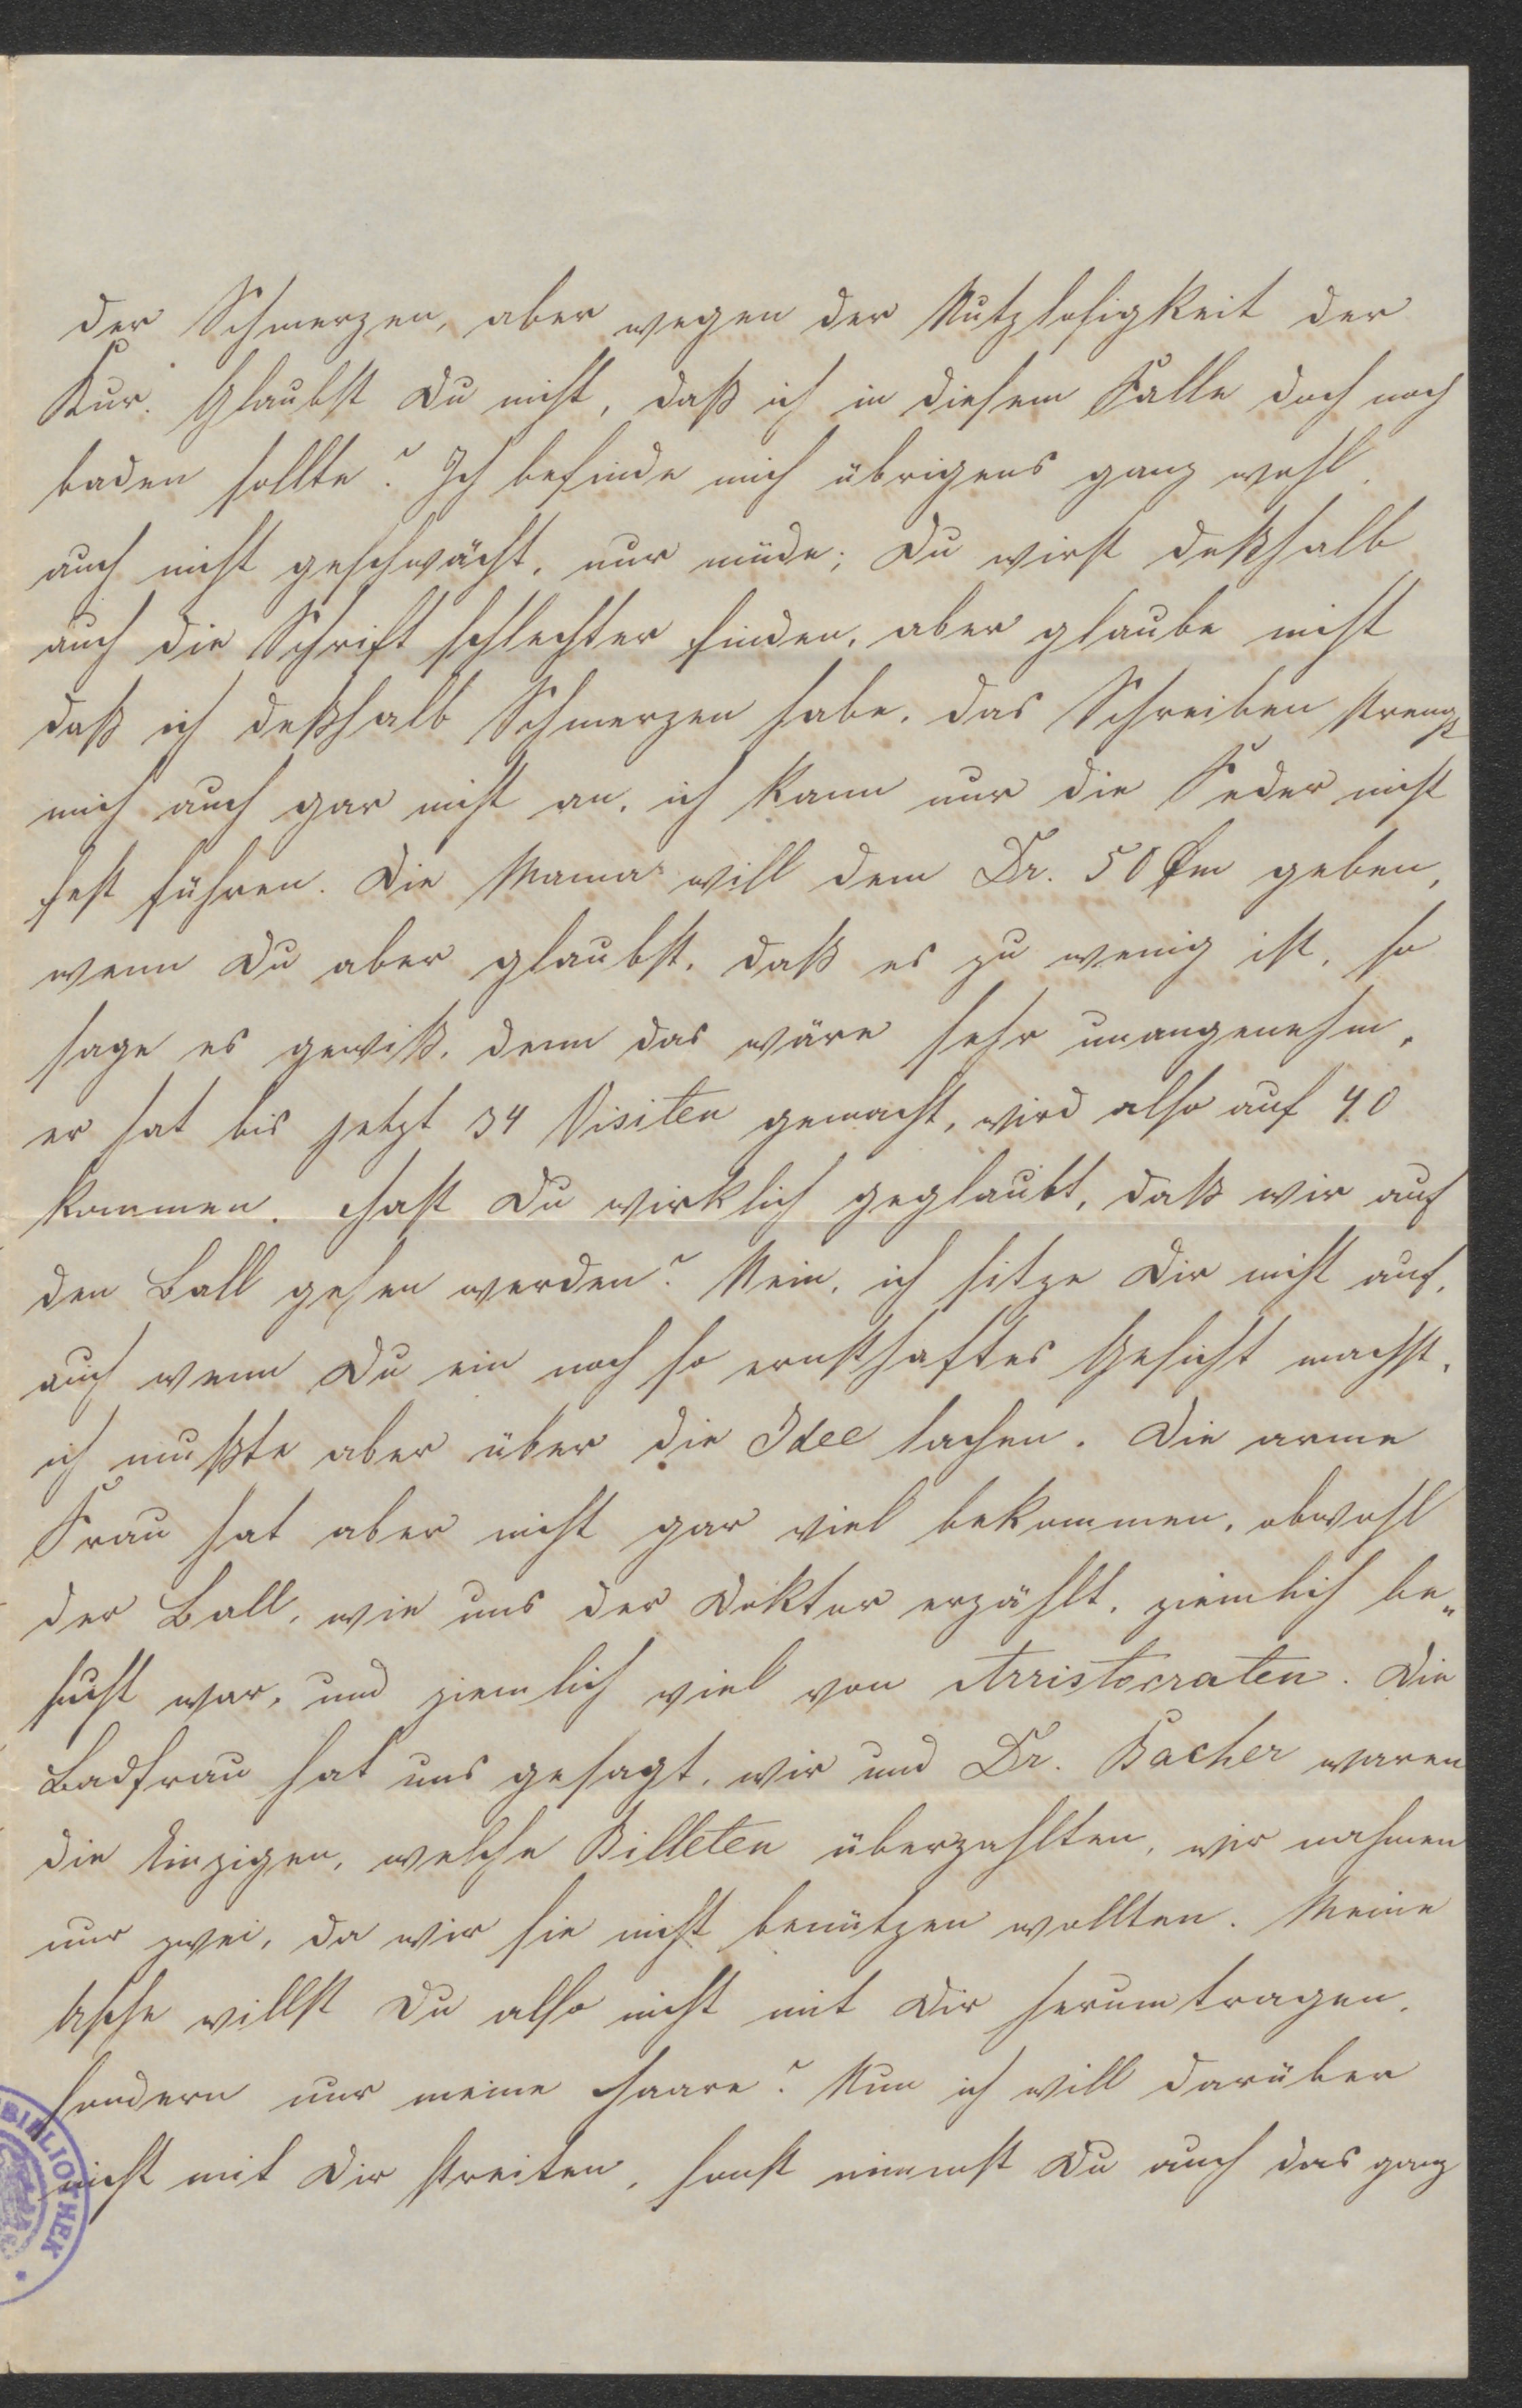 der Schmerzen, aber wegen der Nutzlosigkeit der
Kur. Glaubst Du nicht, daß ich in diesem Falle doch noch
baden sollte? Ich befinde mich übrigens ganz wohl,
auch nicht geschwächt, nur müde; Du wirst deßhalb
auch die Schrift schlechter finden, aber glaube nicht
daß ich deßhalb Schmerzen habe, das Schreiben strengt
mich auch gar nicht an, ich kann nur die Feder nicht
fest führen. Die Mama will dem Dr. 50 geben,
wenn Du aber glaubst, daß es zu wenig ist, so
sage es gewiß, denn das wäre sehr unangenehm,
er hat bis jetzt 34 Visiten gemacht, wird also auf 40
kommen. Hast Du wirklich geglaubt, daß wir auf
den Ball gehen werden? Nein, ich sitze Dir nicht auf,
auch wenn Du ein noch so ernsthaftes Gesicht machst,
ich mußte aber über die Idee lachen. Die arme
Frau hat aber nicht gar viel bekommen, obwohl
der Ball, wie uns der Doktor erzählt, ziemlich be„
sucht war, und ziemlich viel von Arristocraten. Die
Badfrau hat uns gesagt, wir und Dr. Bacher waren
die Einzigen, welche Billeten überzahlten, wir nahmen
nur zwei, da wir sie nicht benützen wollten. Meine
Asche willst Du also nicht mit Dir herumtragen,
sondern nur meine Haare? Nun ich will darüber
nicht mit Dir streiten, sonst nimmst Du auch das ganz
BIBLIOTHEK